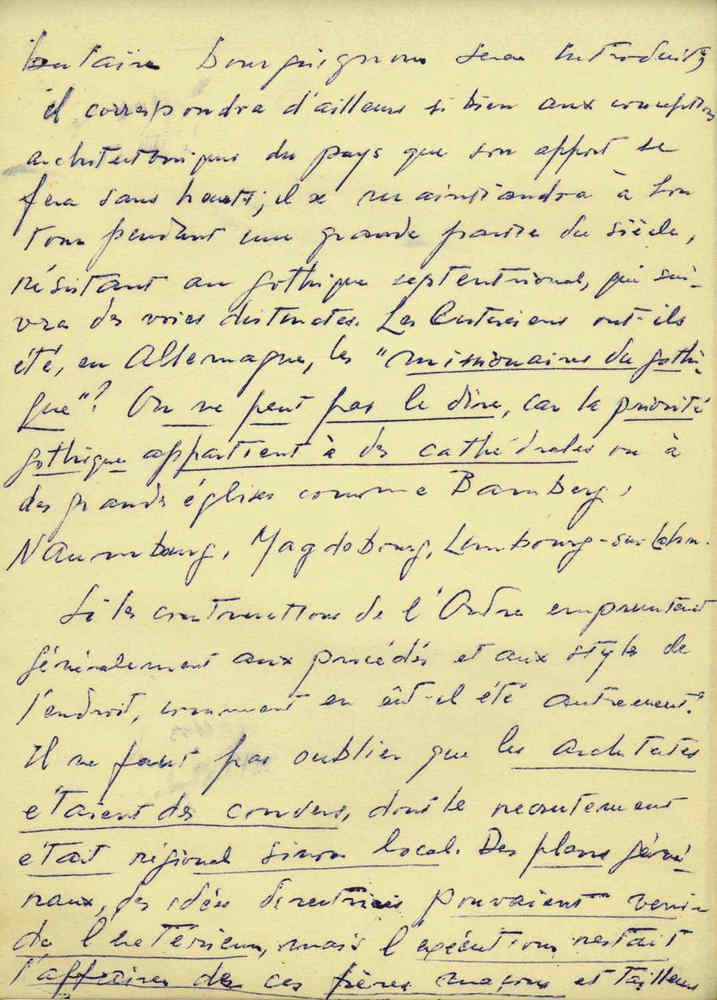 bourguignon sera introduit,
il correspondra d'ailleurs si bien aux conceptions
architectoniques du pays que son apport se
fera sans heurts; il se maintiendra à son
tour pendant une grande partie du siècle,
résistant au gothique septentrional, qui sui-
vra des voies distinctes. Les Cisterciens ont-ils
été, en Allemagne, les "missionaires du gothi-
que"? On ne peut pas le dire, car la priorité
gothique appartient à des cathédrales ou à
des grands églises comme Bamberg,
Naumburg, Magdebourg, Limbourg-sur-Lahn.
Si les constructions de l'Ordre empruntent
généralement aux procédés et aux styles de
l'endroit, comment en eût-il été autrement?
Il ne faut pas oublier que les architectes
étaient des convers, dont le recrutement
était régional sinon local. Des plans géné-
raux, des idées directrices pouvaient venir
de l'extérieur, mais l'exécution restait
l'affaires des ces frères maçons et tailleurs